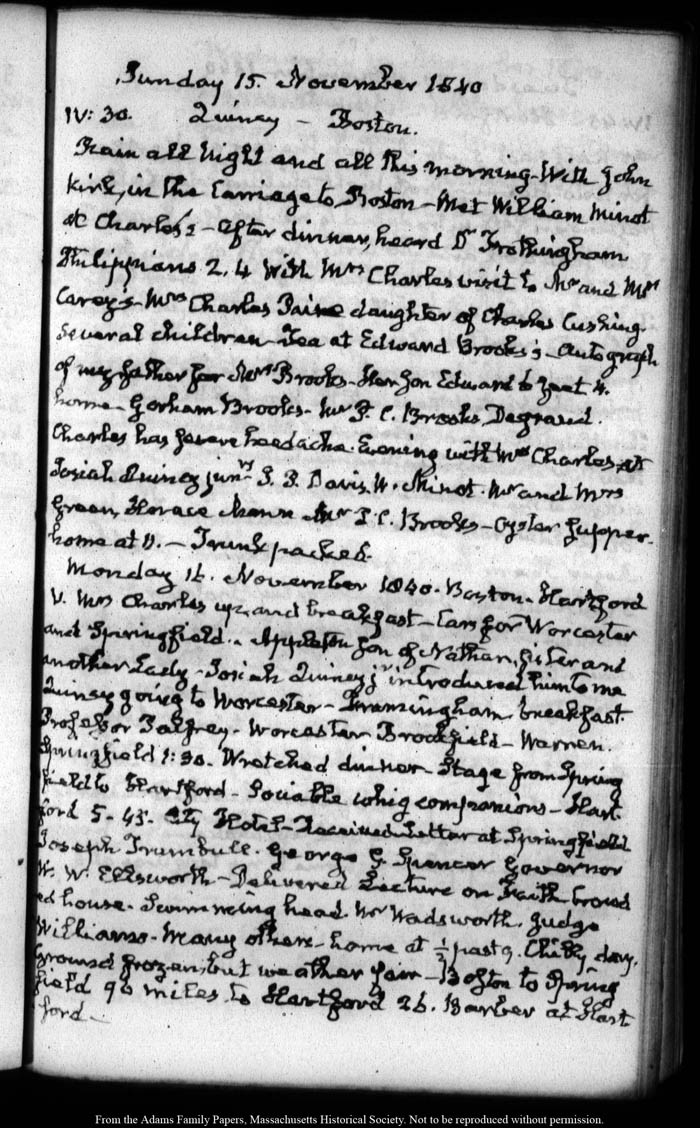 Sunday 15. November 1840
IV: 30. Quincy – Boston.
Rain all night and all this morning – With John
Kirk, in the Carriage to Boston – Met William Minot
at Charles's – After dinner, heard Dr Frothingham
Philippians 2. 4 With Mrs Charles visit to Mr and Mrs
Carey's – Mrs Charles Paine daughter of Charles Cushing
several children – Tea at Edward Brooks's – Autograph
of my father for Mrs Brooks – Her Son Edward
home – Gorham Brooks – Mr P. C. Brooks, Degrand.
Charles has severe headache. Evening with Mrs Charles, at
Josiah Quincy junrs J. P. Davis, W. Minot. Mr and Mrs
Green, Horace Mann Mr P. C. Brooks – Oyster Supper.
home at 11. – Trunk packed.
Monday 16. November 1840. Boston – Hartford
V. Mrs Charles up, and breakfast – Cars for Worcester
and Springfield. Appleton Son of Nathan, Sister and
another Lady – Josiah Quincy jr introduced him to me
Quincy going to Worcester – Framingham breakfast.
Professor Palfrey – Worcester Brookfield – Warren.
Springfield 1:30. Wretched dinner – Stage from Spring
field to Hartford – Sociable whig companions – Hart
ford 5. 45. City Hotel – Received Letter at Springfield
Joseph Trumbull. George S. Spencer Governor
W. W. Ellsworth – Delivered Lecture on Faith Crowd
ed house. Swimming head. Mr Wadsworth. Judge
Williams. Many others – home at ½ past 9. Chilly day.
Ground frozen, but weather fair – Boston to Spring
field 96 miles to Hartford 26. Barber at Hart
ford –
From the Adams Family Papers, Massachusetts Historical Society. Not to be reproduced without permission.